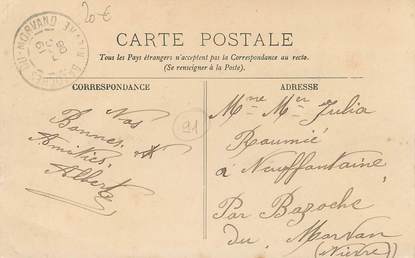 20 €
CARTE POSTALE
Tous les Pays étrangers n'acceptent pas la Correspondance au recto.
(Se renseigner à la Poste).
CORRESPONDANCE
Nos
Bonnes
Amitiés
Albert
91
ADRESSE
Mme Julia
Roumié
à Neuffontaine
Par Bazoche
du Morvan
(Nièvre)